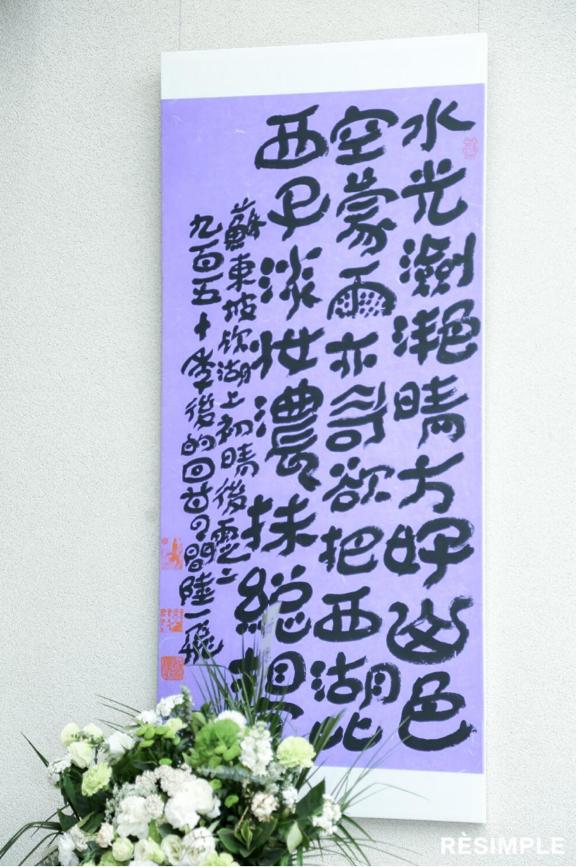 水光瀲滟晴方好山色
空蒙雨亦奇欲把西湖比
西子淡妝濃抹總相
蘇東坡飲湖上初晴後雨二
九百五十季後的回首間陸一飛
RÈSIMPLE